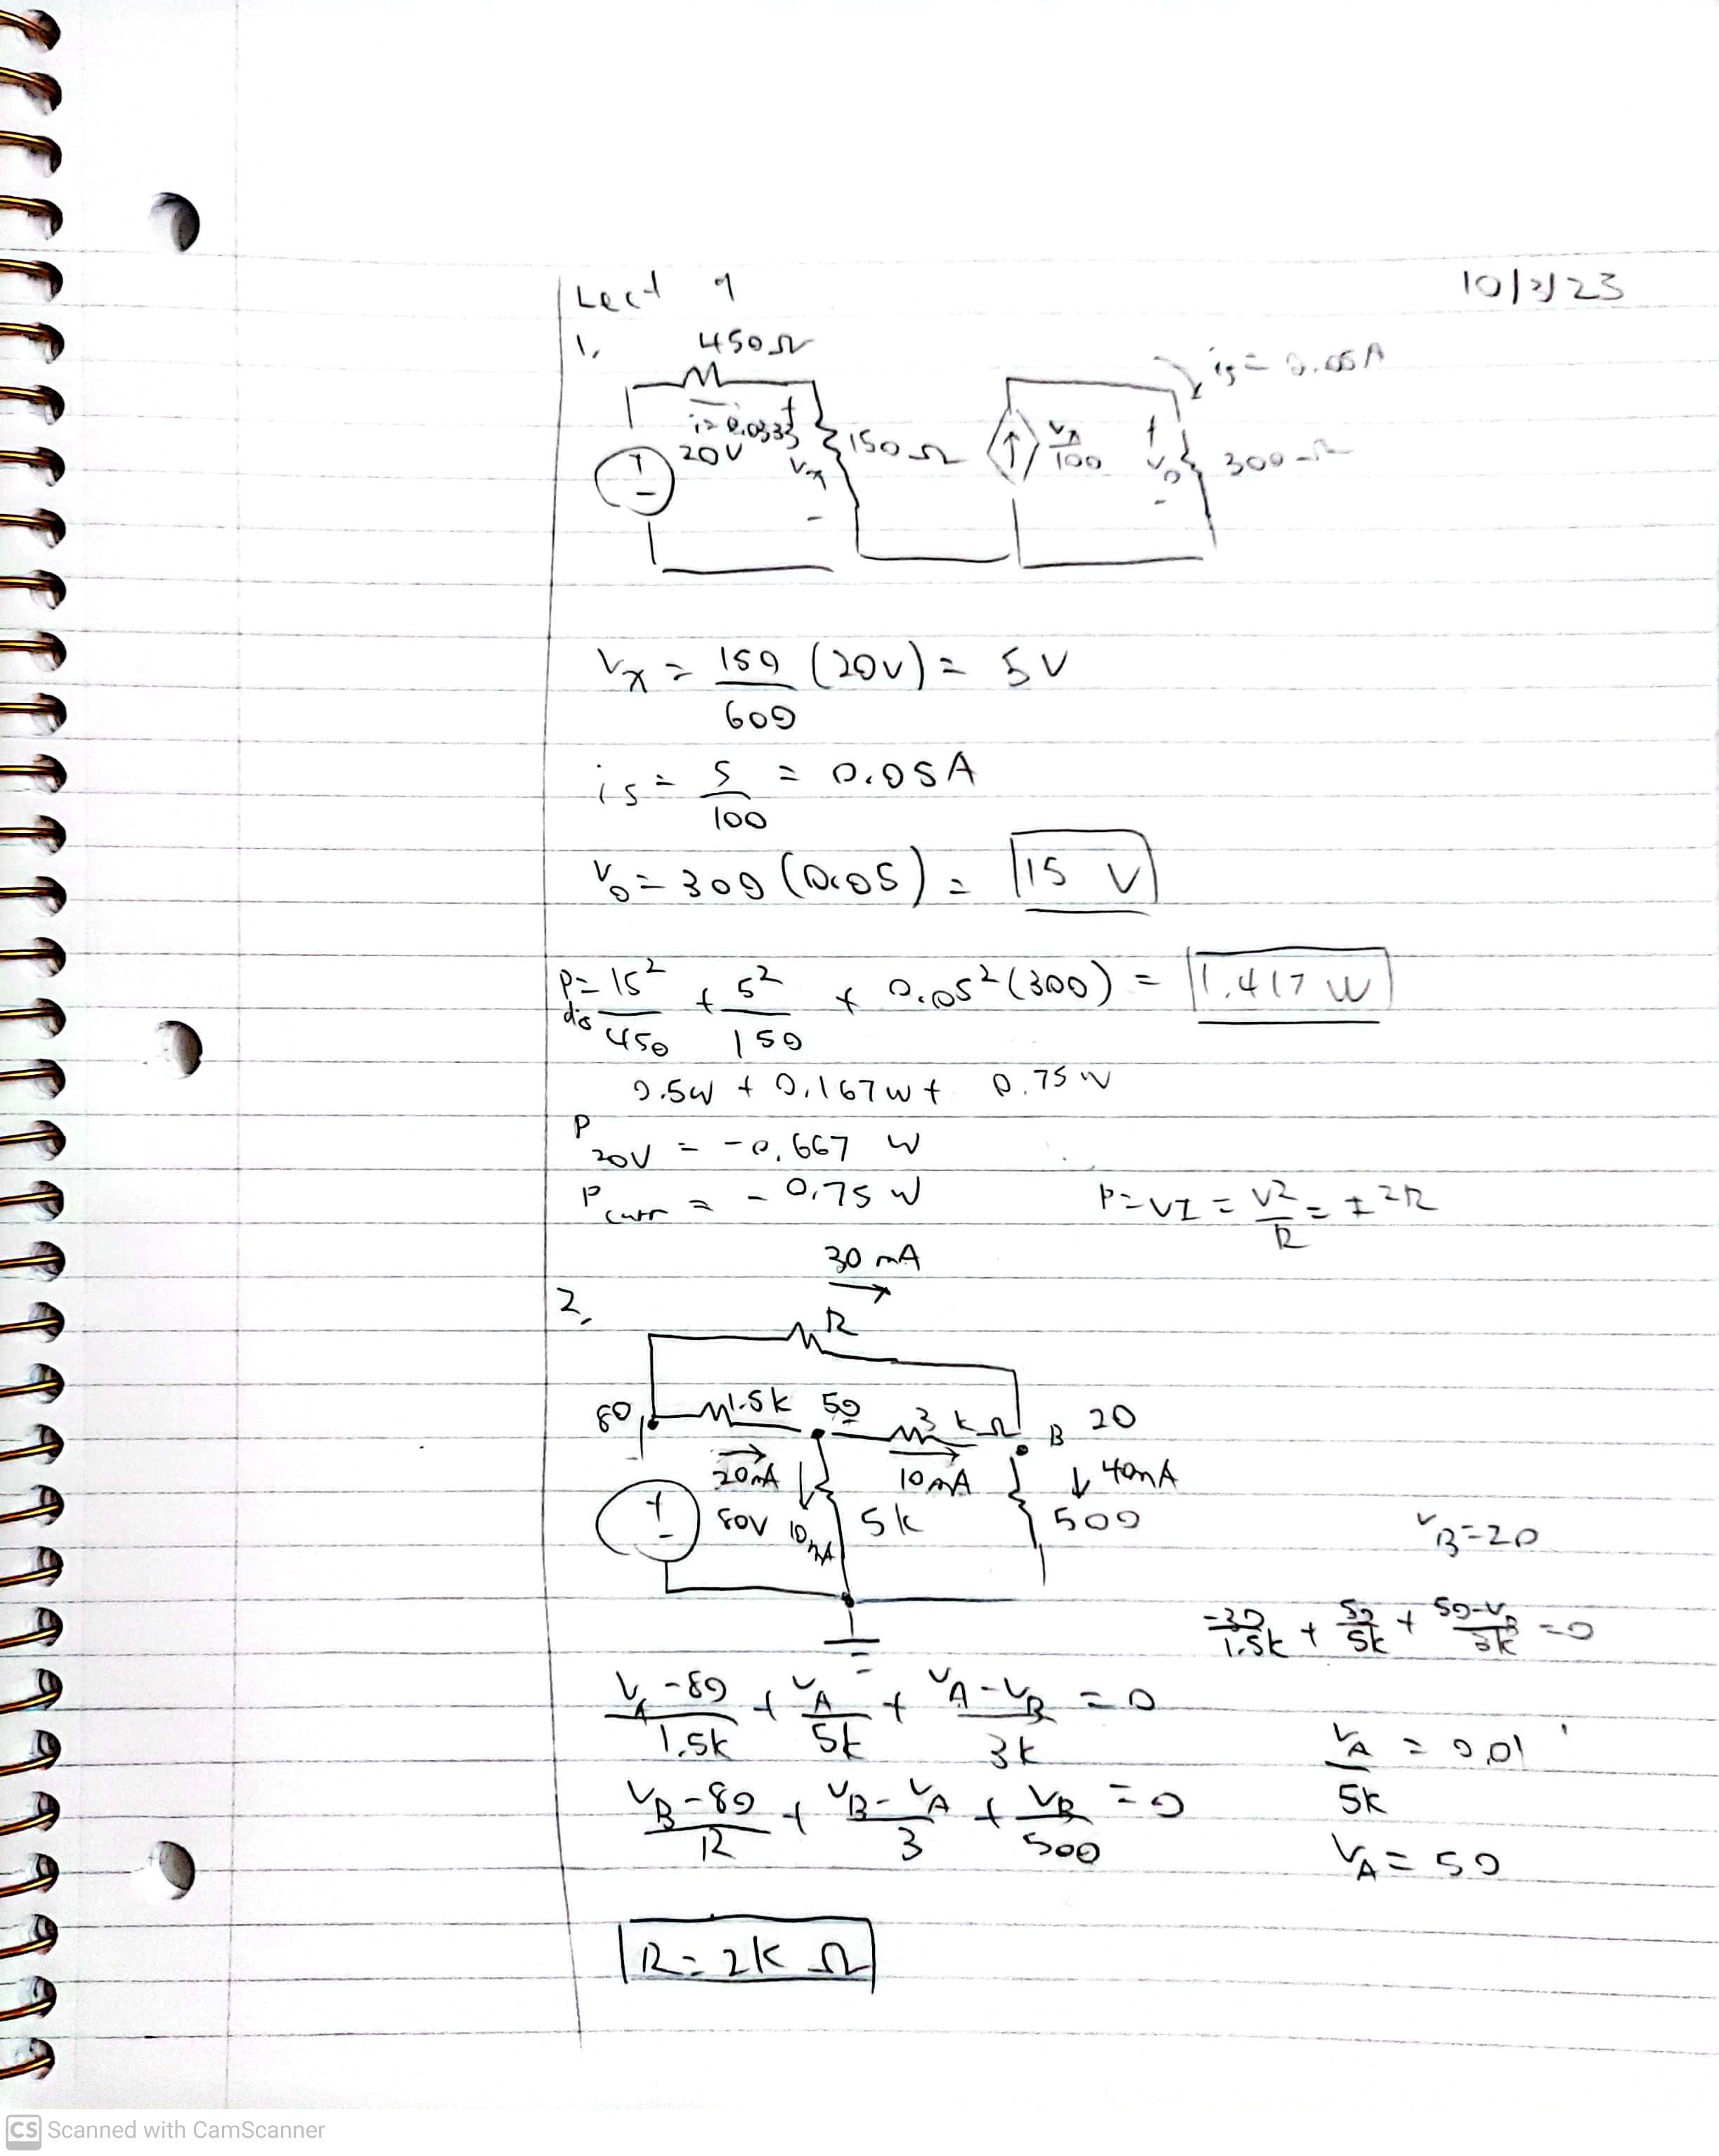 Lect 9 10/2/23
1. 450Ω
i = 0.0333
20V
+ Vx -
150Ω
Vx/100
is = 0.05A
+ Vo -
300Ω
Vx = 150/600 (20V) = 5V
is = 5/100 = 0.05A
Vo = 300 (0.05) = 15 V
Pdis = 15²/450 + 5²/150 + 0.05²(300) = 1.417 W
0.5W + 0.167W + 0.75W
P20V = -0.667 W
Pcurr = -0.75 W P=VI = V²/R = I²R
30 mA
2. R
80 1.5k 50 3kΩ B 20
20mA 10mA 40mA
80V 10mA 5k 500
VB=20
-30/1.5k + 50/5k + 50-VB/3k = 0
VA-80/1.5k + VA/5k + VA-VB/3k = 0
VA/5k = 0.01
VB-80/R + VB-VA/3 + VB/500 = 0
VA = 50
R = 2kΩ
CS Scanned with CamScanner